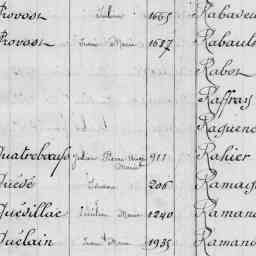 Provost Julien 1665 Rabades
Provost Jean Marie 1687 Rabault
Rabot
Raffray
Raguene
Quatreboeufs Julien Pierre Ange Marie 911 Rahier
Quédé 206 Ramag
Quévillac Marie 1240 Raman
Quélain Jean Marie 1935 Raman